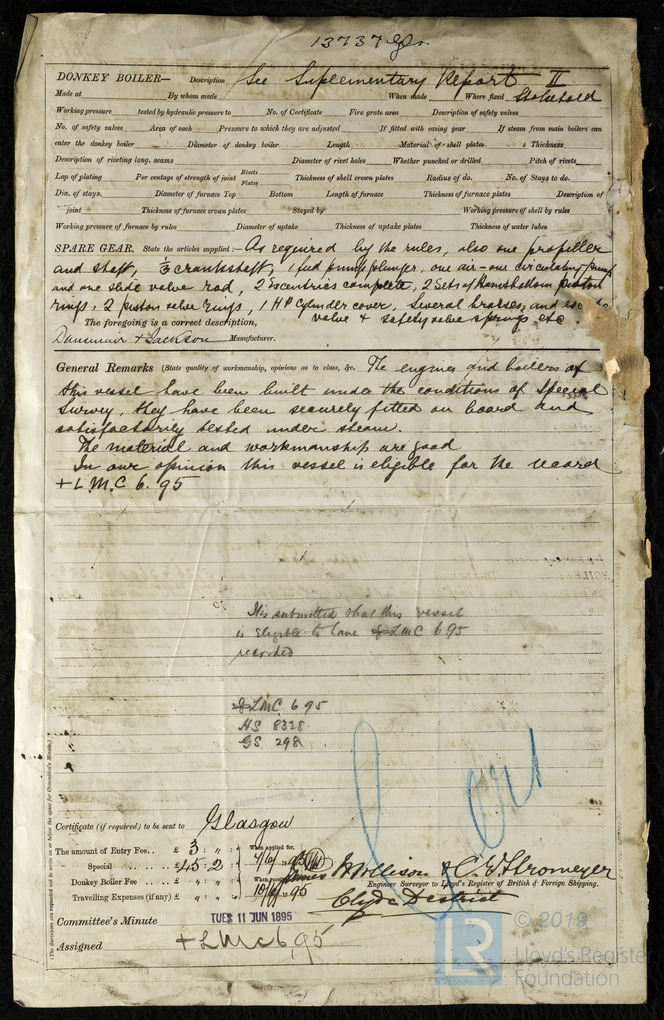 13737 Gls.
DONKEY BOILER— Description See Suplementary Report II
Made at By whom made When made Where fixed Stokehold
Working pressure tested by hydraulic pressure to No. of Certificate Fire grate area Description of safety valves
No. of safety valves Area of each Pressure to which they are adjusted If fitted with easing gear If steam from main boilers can
enter the donkey boiler Diameter of donkey boiler Length Material of shell plates Thickness
Description of riveting long. seams Diameter of rivet holes Whether punched or drilled Pitch of rivets
Lap of plating Per centage of strength of joint Rivets Plates Thickness of shell crown plates Radius of do. No. of Stays to do.
Dia. of stays. Diameter of furnace Top Bottom Length of furnace Thickness of furnace plates Description of
joint Thickness of furnace crown plates Stayed by Working pressure of shell by rules
Working pressure of furnace by rules Diameter of uptake Thickness of uptake plates Thickness of water tubes
SPARE GEAR. State the articles supplied:— As required by the rules, also one propeller
and shaft, 1/3 crankshaft, 1 feed pump plunger, one air - one circulating pump
and one slide valve rod, 2 Excentrics complete, 2 Sets of Ramsbottom piston
rings, 2 piston valve rings, 1 HP Cylinder cover, several brasses, and
valve & safety valve springs etc.
The foregoing is a correct description,
Dunsmuir & Jackson Manufacturer.
General Remarks (State quality of workmanship, opinions as to class, &c. The engines and boilers of
this vessel have been built under the conditions of Special
Survey, they have been securely fitted on board and
satisfactorily tested under steam.
The material and workmanship are good
In our opinion this vessel is eligible for the record
+ L.M.C 6.95
It is submitted that this vessel
is eligible to have +LMC 6 95
recorded
+LMC 6 95
HS 8328
GS 298
(The Surveyors are requested not to write on or below the space for Committee's Minute.)
Certificate (if required) to be sent to Glasgow
The amount of Entry Fee.. £ 3 : " : When applied for,
Special £ 45 : 2 : 7/6/95
Donkey Boiler Fee £ " : " : When received,
Travelling Expenses (if any) £ " : " : 10/6/95
James Mollison & C.E. Stromeyer
Engineer Surveyor to Lloyd's Register of British & Foreign Shipping.
Clyde District
Committee's Minute TUES 11 JUN 1895
Assigned + LMC 6,95
© 2019
LR Lloyd's Register
Foundation